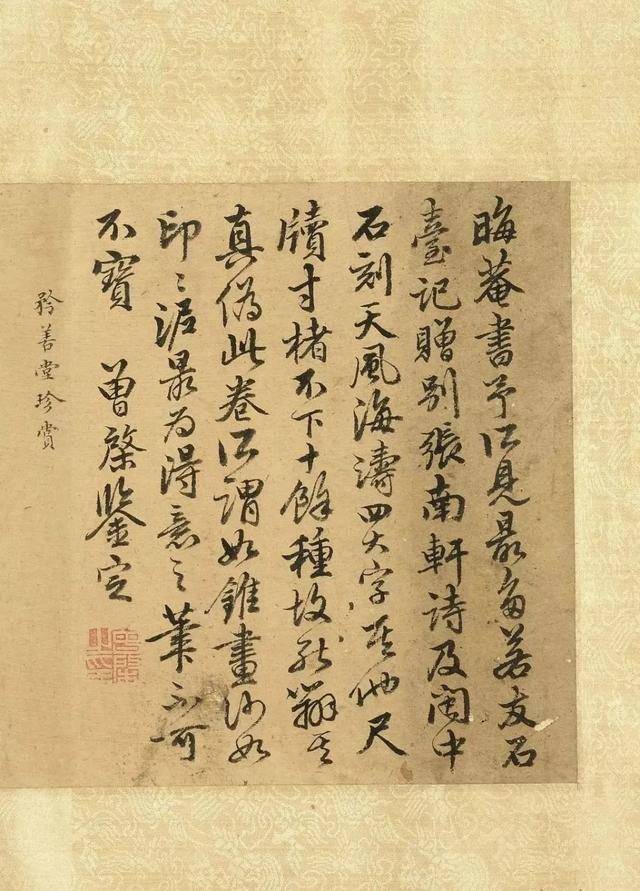 晦菴書予所見最多若友石
臺記贈別張南軒詩及閩中
石刻天風海濤四大字其他尺
牘寸楮不下十餘種故能辨其
真偽此卷所謂如錐畫沙如
印々泥最為得意之筆不可
不寶 曾棨鑒定
矜善堂珍賞